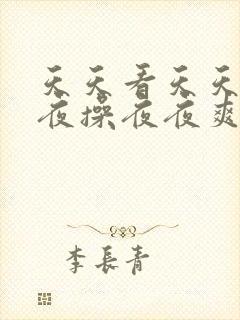 天天看天天
夜操夜夜爽
李長青